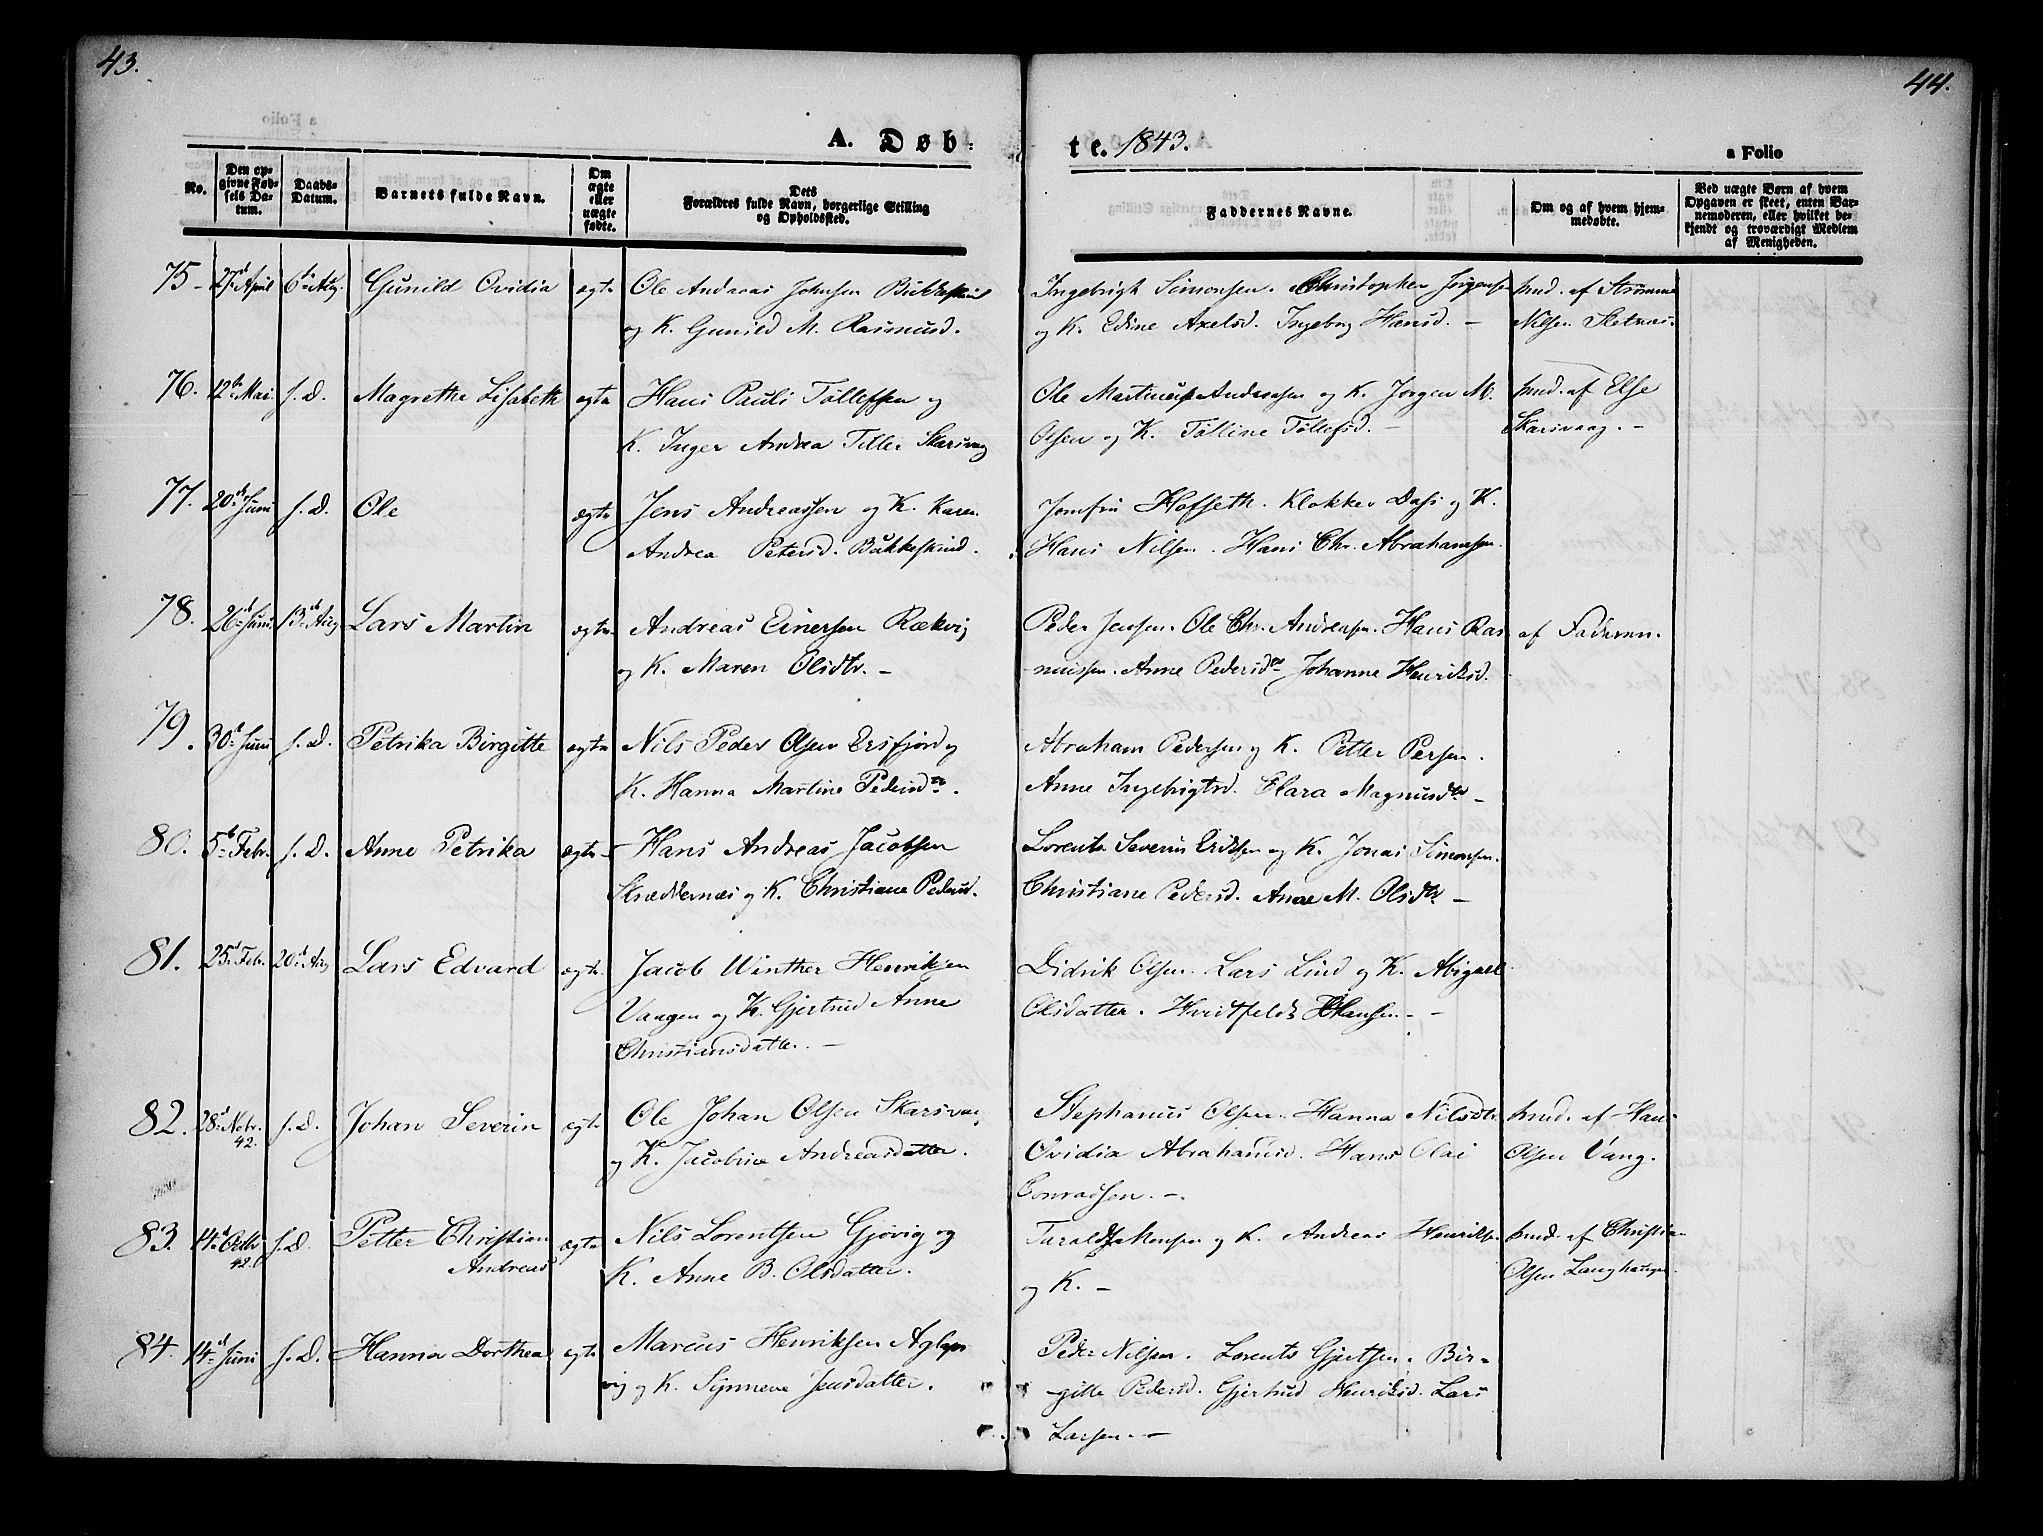 43.
44.
A. Døb-
te. 1843.
a Folio
No.
Den op-
givne Fød-
sels Da-
tum.
Daabs-
Datum.
Barnets fulde Navn.
Om
ægte
eller
uægte
fødte.
Dets
Forældres fulde Navn, borgerlige Stilling
og Opholdssted.
Faddernes Navne.
Om og af hvem hjem-
medøbte.
Ved uægte Børn af hvem
Opgaven er skeet, enten Bar-
nemoderen, eller hvilket be-
kjendt og troværdigt Medlem
af Menigheden.
75 27d April 6te Aug. Gunild Ovidia ægte Ole Andreas Johnsen Bukkeskind
og K. Gunild M. Rasmusd.
Ingebrigt Simonsen. Christopher Jørgensen
og K. Edine Axelsd. Ingeborg Hansd. —
hmd. af Strømme
Nilsen Sletnæs.
76. 12te Mai. s. D. Magrethe Lisabeth ægte Hans Pauli Tollefsen og
K. Inger Andrea Tiller Skarsvaag
Ole Martinus Andreasen og K. Jørgen M.
Olsen og K. Tolline Tollefsd. —
hmd. af Else
Skarsvaag. —
77. 20d Juni s. D. Ole ægte Jens Andreassen og K. Karen
Andrea Petersd. Bukkeskind.
Jomfru Hofseth. Klokker Dass og K.
Hans Nilsen. Hans Chr. Abrahamsen.
78. 26d Juni 13d Aug Lars Martin ægte Andreas Einersen Rækvig
og K. Maren Olsdtr. —
Peder Jensen. Ole Chr. Andreasen. Hans Ras
mussen. Anne Pedersdtr Johanne Henriksd.
af Faderen.
79. 30d Juni s. D. Petrika Birgitte ægte Nils Peder Olsen Ersfjord og
K. Hanna Martine Pedersdtr.
Abraham Pedersen og K. Petter Persen.
Anne Ingebrigtsd. Elara Magnusdtr —
80. 5d Febr. s. D. Anne Petrika ægte Hans Andreas Jacobsen
Skreddernæs og K. Christiane Pedersd.
Lorents Severin Eriksen og K. Jonas Simonsen.
Christiane Pedersd. Anne M. Olsdtr. —
81. 25d Febr. 20d Aug Lars Edvard ægte Jacob Winther Henriksen
Vangen og K. Gjertrud Anne
Christiansdatter. —
Didrik Olsen. Lars Lind og K. Abigael
Olsdatter. Hvidtfeldt Hansen. —
82. 28d Nobr. 42. s. D. Johan Severin ægte Ole Johan Olsen Skarsvaag
og K. Jacobine Andreasdatter.
Stephanus Olsen. Hanna Nilsdtr.
Ovidia Abrahamsd. Hans Olai
Conradsen. —
hmd. af Hans
Olsen Vang.
83. 14d Octbr 42. s. D. Petter Christian
Andreas ægte Nils Lorentsen Gjøvig og
K. Anne B. Olsdatter.
og K. Andreas Henriksen
og K. —
hmd. af Christian
Olsen
84. 14d Juni s. D. Hanna Dorthea ægte Marcus Henriksen Aglap
vig og K. Synneve Jensdatter.
Peder Nilsen. Lorents Gjertsen. Bir-
gitte Pedersd. Gjertrud Henriksd. Lars
Larsen. —